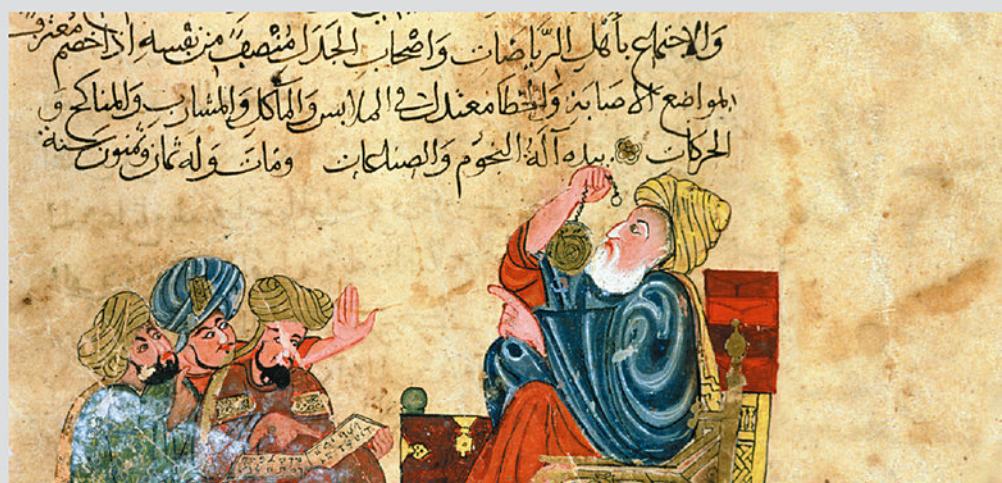 والاجتماع بأهل الرِّياضات وَاصْحاب الجدَل مُنْصِفٌ من نفسِه اذا خصم معترف
بمواضع الاصابة وَالخطا معتدل في الملابس وَالمآكل وَالمشارب وَالمناكح وَ
الحركات بيده آلة النجوم وَالصناعات وماتَ وَله ثمان وثمنون سنة